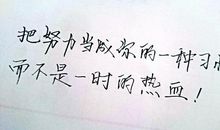 把努力当成你的一种习
而不是一时的热血！